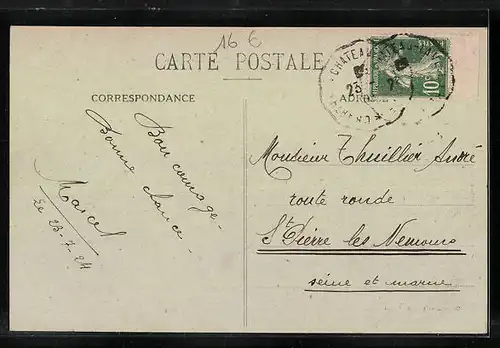 16 €
CARTE POSTALE
CORRESPONDANCE
ADRESSE
Bon courage -
Bonne chance -
Marcel
Le 23-7-24
Monsieur Thuillier André
route ronde
St Pierre les Nemours
seine et marne
CHATEAU
23
7
10